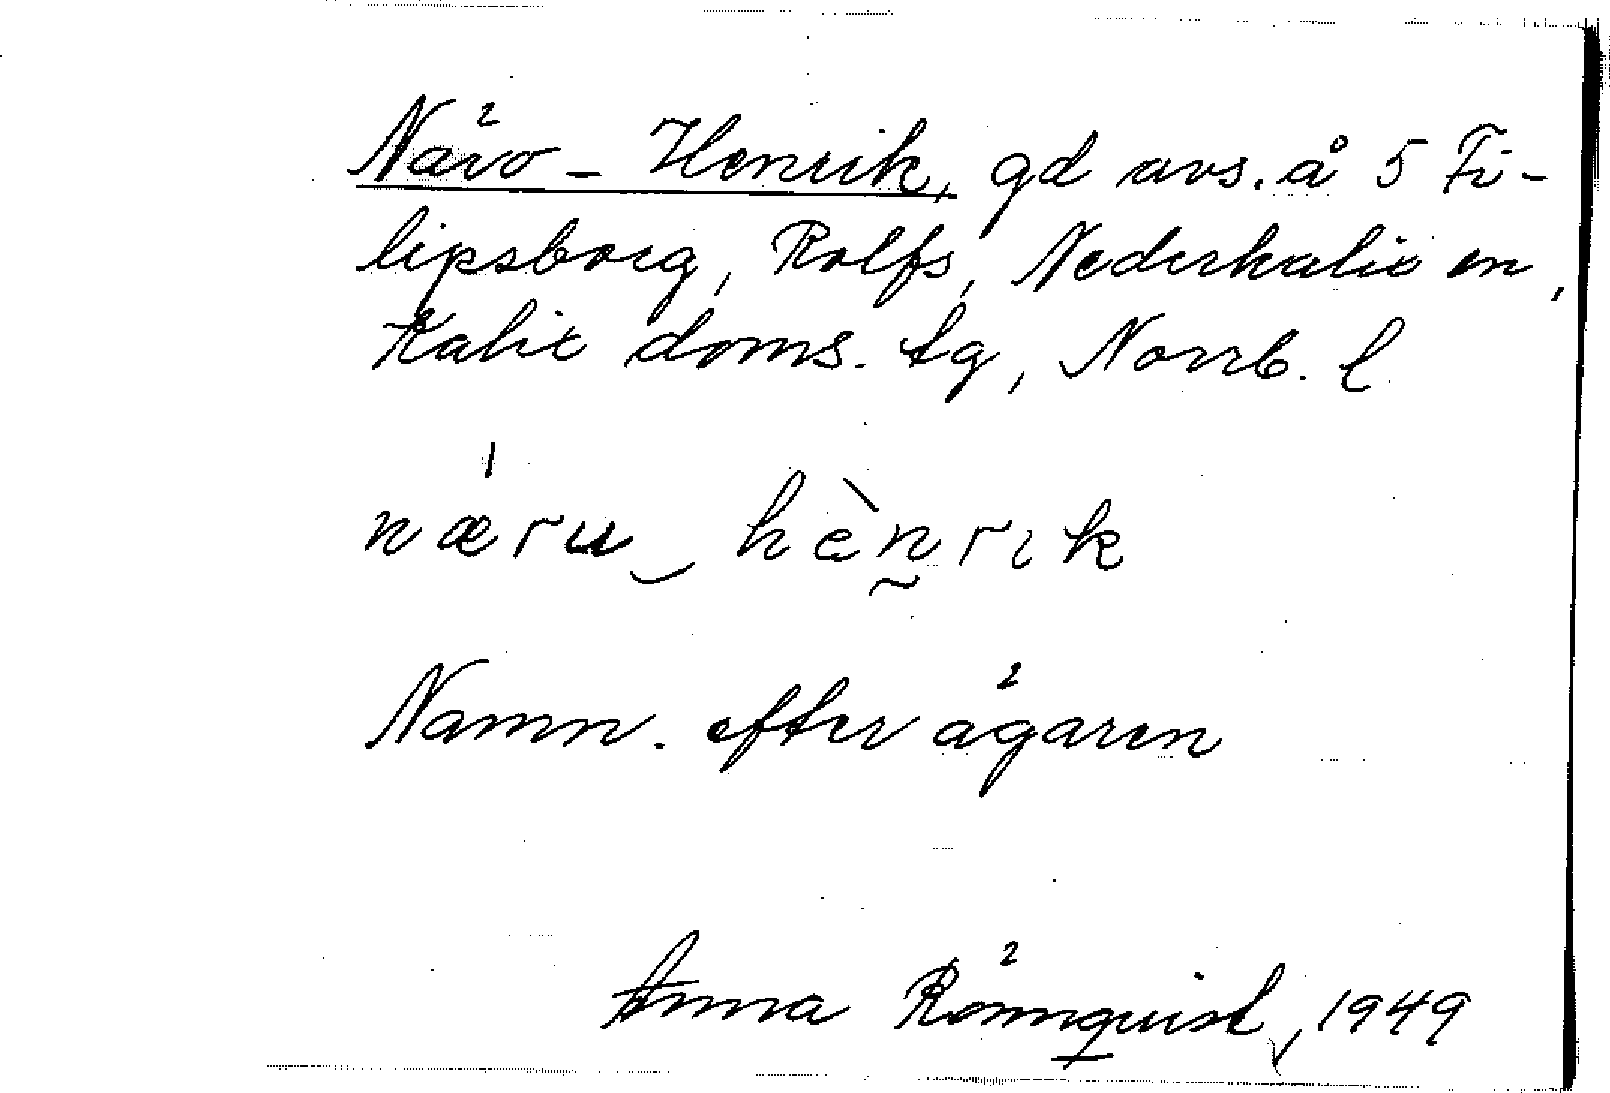 Närö-Henrik, gd avs. å 5 Fi-
lipsborg, Rolfs, Nederkalix sn,
Kalix doms. tg, Norrb. l
næru‿hènrɪk
Namn. efter ägaren
Anna Rönnquist, 1949